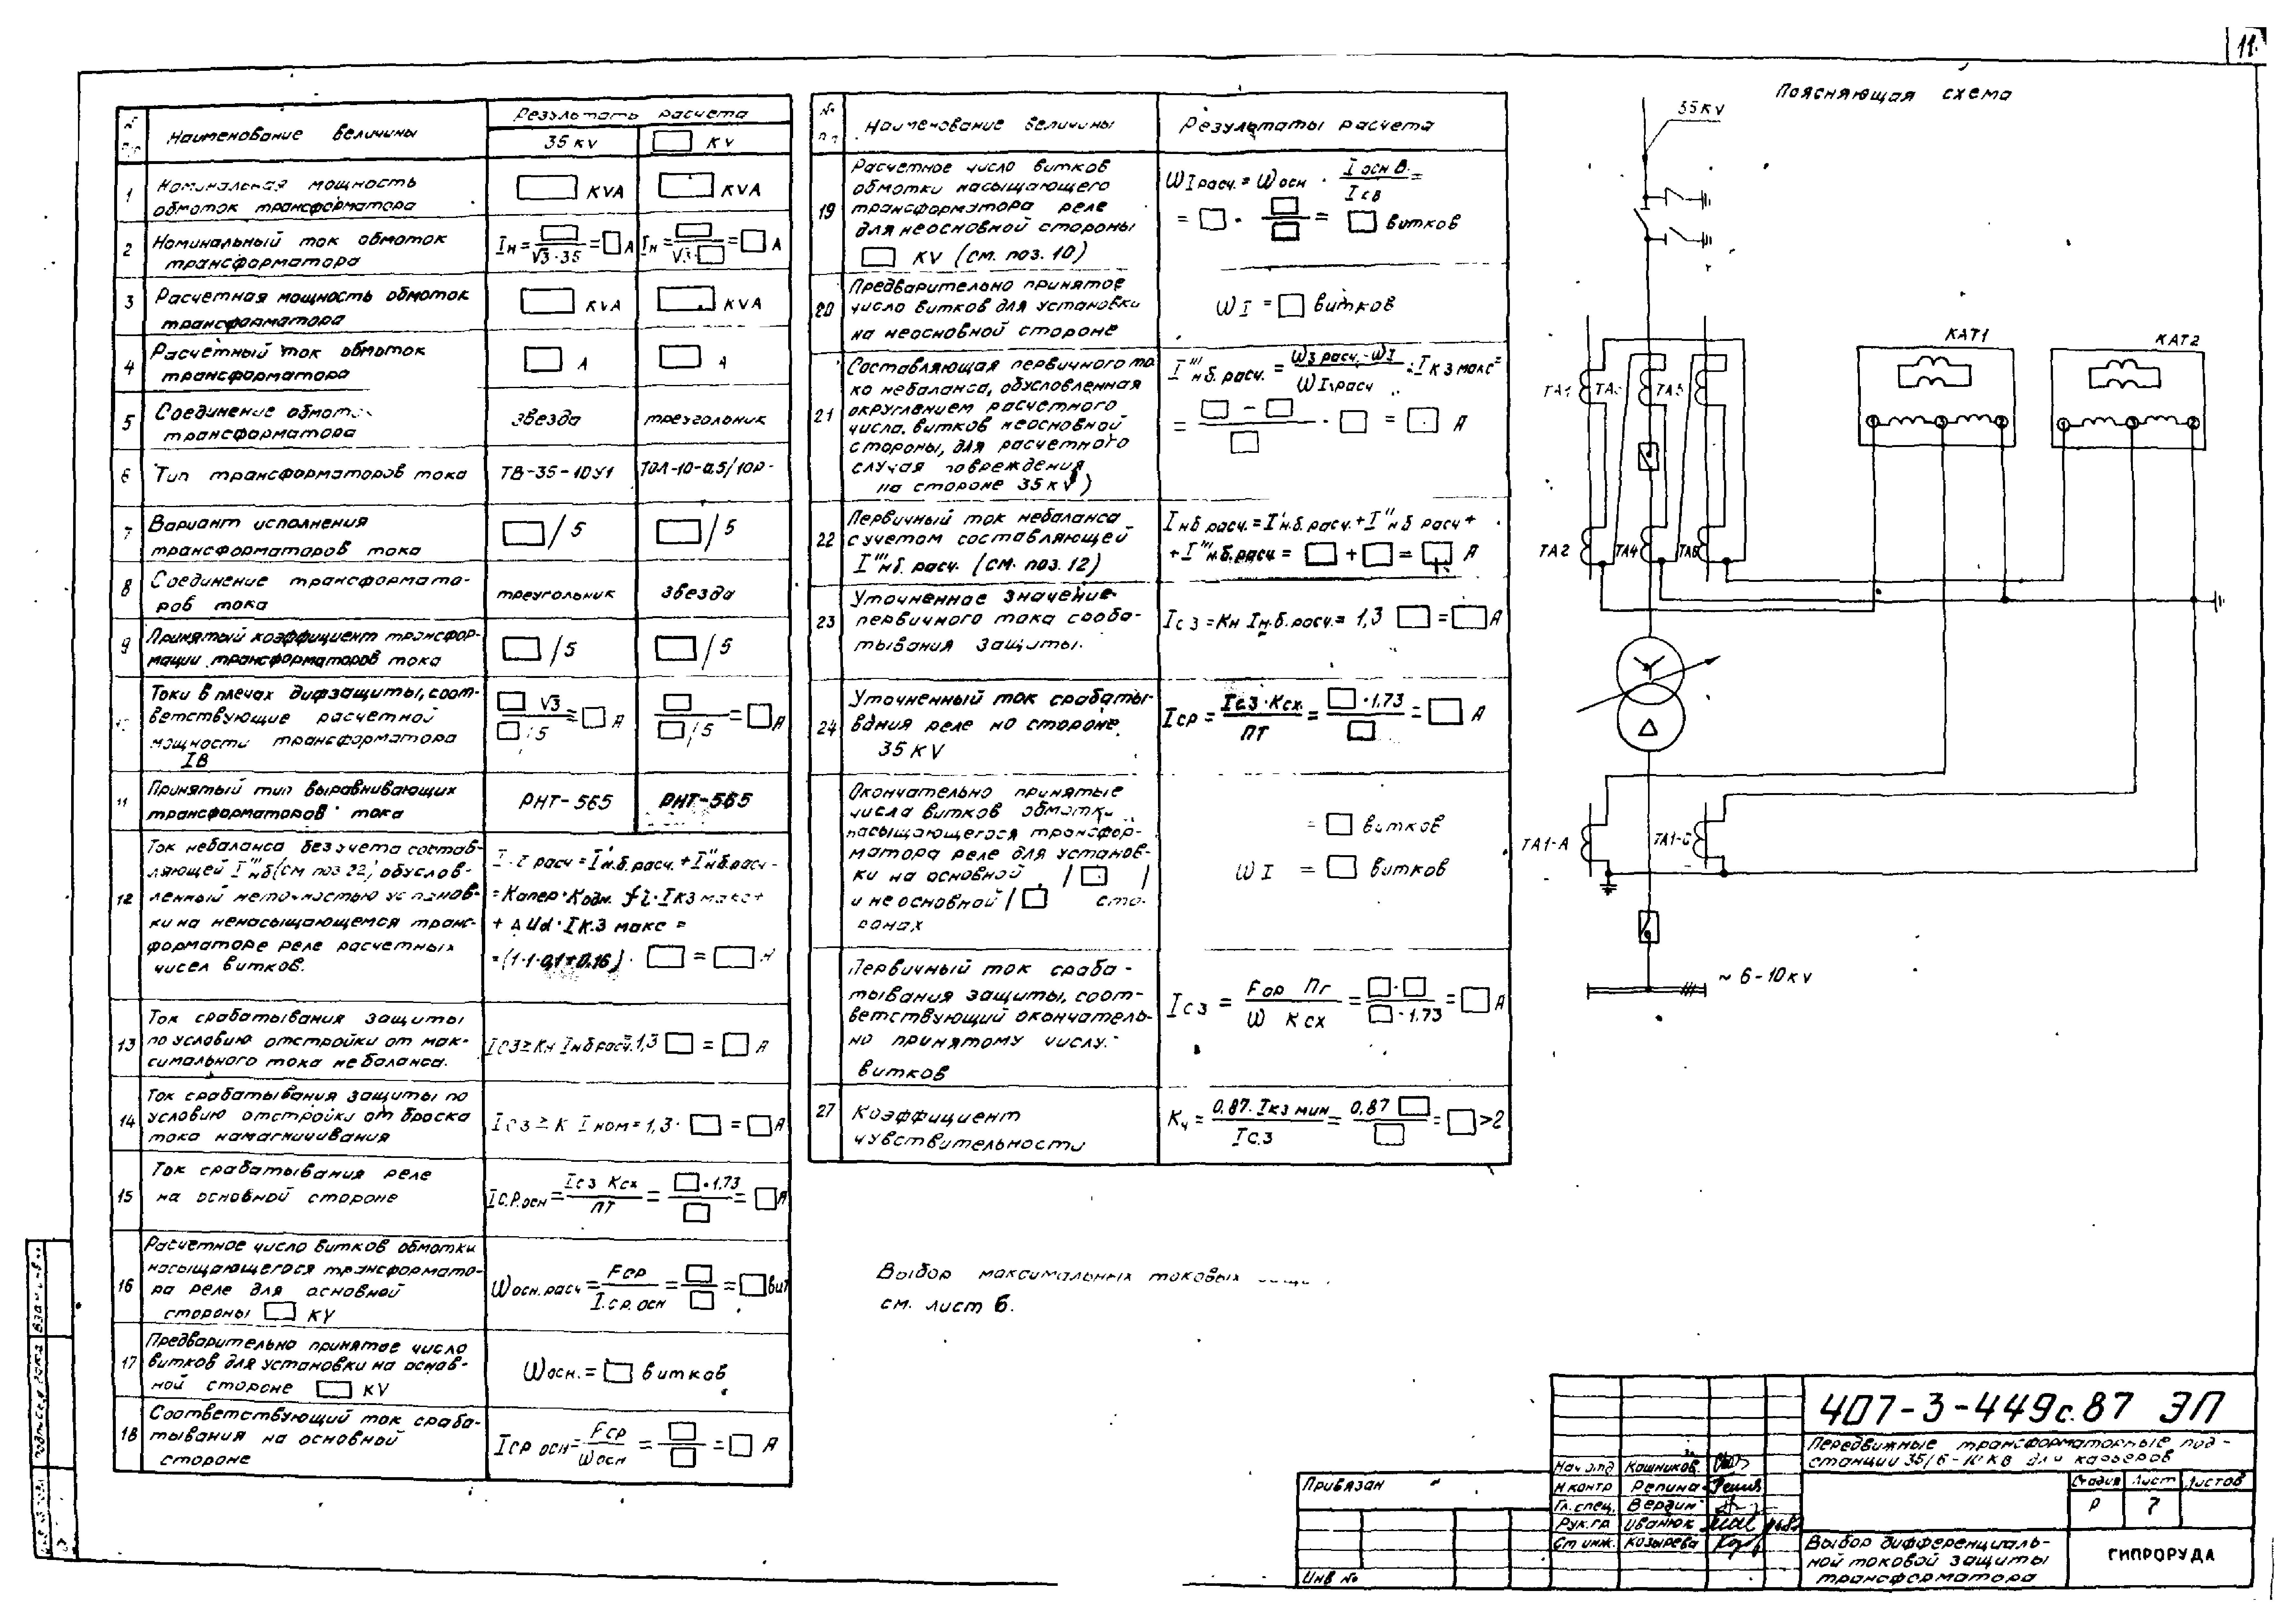 11
Поясняющая схема
N п/п
Наименование величины
Результаты расчета
35 KV
KV
1
Номинальная мощность
обмоток трансформатора
KVA
KVA
2
Номинальный ток обмоток
трансформатора
Iн = / √3·35 = А
Iн = / √3· = А
3
Расчетная мощность обмоток
трансформатора
KVA
KVA
4
Расчетный ток обмоток
трансформатора
А
А
5
Соединение обмоток
трансформатора
звезда
треугольник
6
Тип трансформаторов тока
ТВ-35-10У1
ТОЛ-10-0,5/10Р-
7
Вариант исполнения
трансформаторов тока
/ 5
/ 5
8
Соединение трансформато-
ров тока
треугольник
звезда
9
Принятый коэффициент трансфор-
мации трансформаторов тока
/ 5
/ 5
Токи в плечах дифзащиты, соот-
ветствующие расчетной
мощности трансформатора
IВ
√3 / /5 = А
/ /5 = А
11
Принятый тип выравнивающих
трансформаторов тока
РНТ-565
РНТ-565
12
Ток небаланса без учета состав-
ляющей I'''нб (см поз 22), обуслов-
ленный неточностью установ-
ки на ненасыщающемся транс-
форматоре реле расчетных
чисел витков.
расч = I'н.б.расч. + I''нб.расч =
= Kапер·Kодн. fi·Iкз макс +
+ ΔUd·Iк.з макс =
= (1·1·0,1+0,16)· =
13
Ток срабатывания защиты
по условию отстройки от мак-
симального тока небаланса.
Iсз ≥ Kн Iнб расч. 1,3 = А
14
Ток срабатывания защиты по
условию отстройки от броска
тока намагничивания
Iсз ≥ K Iном = 1,3· = А
15
Ток срабатывания реле
на основной стороне
Iс.р.осн = Iсз Kсх / пт = ·1,73 / = А
16
Расчетное число витков обмотки
насыщающегося трансформато-
ра реле для основной
стороны KV
Wосн.расч = Fср / I.ср.осн = = вит
17
Предварительно принятое число
витков для установки на основ-
ной стороне KV
Wосн. = витков
18
Соответствующий ток сраба-
тывания на основной
стороне
Iср осн = Fср / Wосн = = А
№ п.п
Наименование величины
Результаты расчета
19
Расчетное число витков
обмотки насыщающего
трансформатора реле
для неосновной стороны
KV (см. поз. 10)
WI расч. = Wосн · I осн В. / I сВ =
= · = витков
20
Предварительно принятое
число витков для установки
на неосновной стороне
WI = витков
21
Составляющая первичного то
ка небаланса, обусловленная
округлением расчетного
числа витков неосновной
стороны, для расчетного
случая повреждения
на стороне 35 KV)
I'''нб.расч. = Wз расч. - WI / WI расч · Iкз макс =
= - / · = А
22
Первичный ток небаланса
с учетом составляющей
I'''нб. расч. (см. поз. 12)
Iнб расч. = I'н.б.расч. + I''нб расч +
+ I'''нб.расч = + = А
23
Уточненное значение
первичного тока сраба-
тывания защиты.
Iсз = Kн Iн.б.расч. = 1,3 = А
24
Уточненный ток срабаты-
вания реле на стороне
35 KV
Iср = Iсз·Kсх / пт = ·1,73 / = А
Окончательно принятые
числа витков обмотки
насыщающегося трансфор-
матора реле для установ-
ки на основной / /
и неосновной / сто-
ронах
= витков
WI = витков
Первичный ток сраба-
тывания защиты, соот-
ветствующий окончатель-
но принятому числу
витков
Iсз = Fор Пг / W Kсх = · / ·1,73 = А
27
Коэффициент
чувствительности
Kч = 0,87·Iкз мин / Iс.з = 0,87 / = >2
Выбор максимальных токовых
см. лист 6.
35 KV
KAT1
KAT2
TA1
TA3
TA5
TA2
TA4
TA6
TA1-A
TA1-C
~ 6-10 KV
407-3-449с.87 ЭП
Передвижные трансформаторные под-
станции 35/6-10 кВ для карьеров
Стадия Лист Листов
Р 7
Выбор дифференциаль-
ной токовой защиты
трансформатора
ГИПРОРУДА
Нач отд Кошников
Н контр Репина
Гл. спец. Вердин
Рук.гр Иванюк
Ст инж. Козырева
Привязан
Инв №